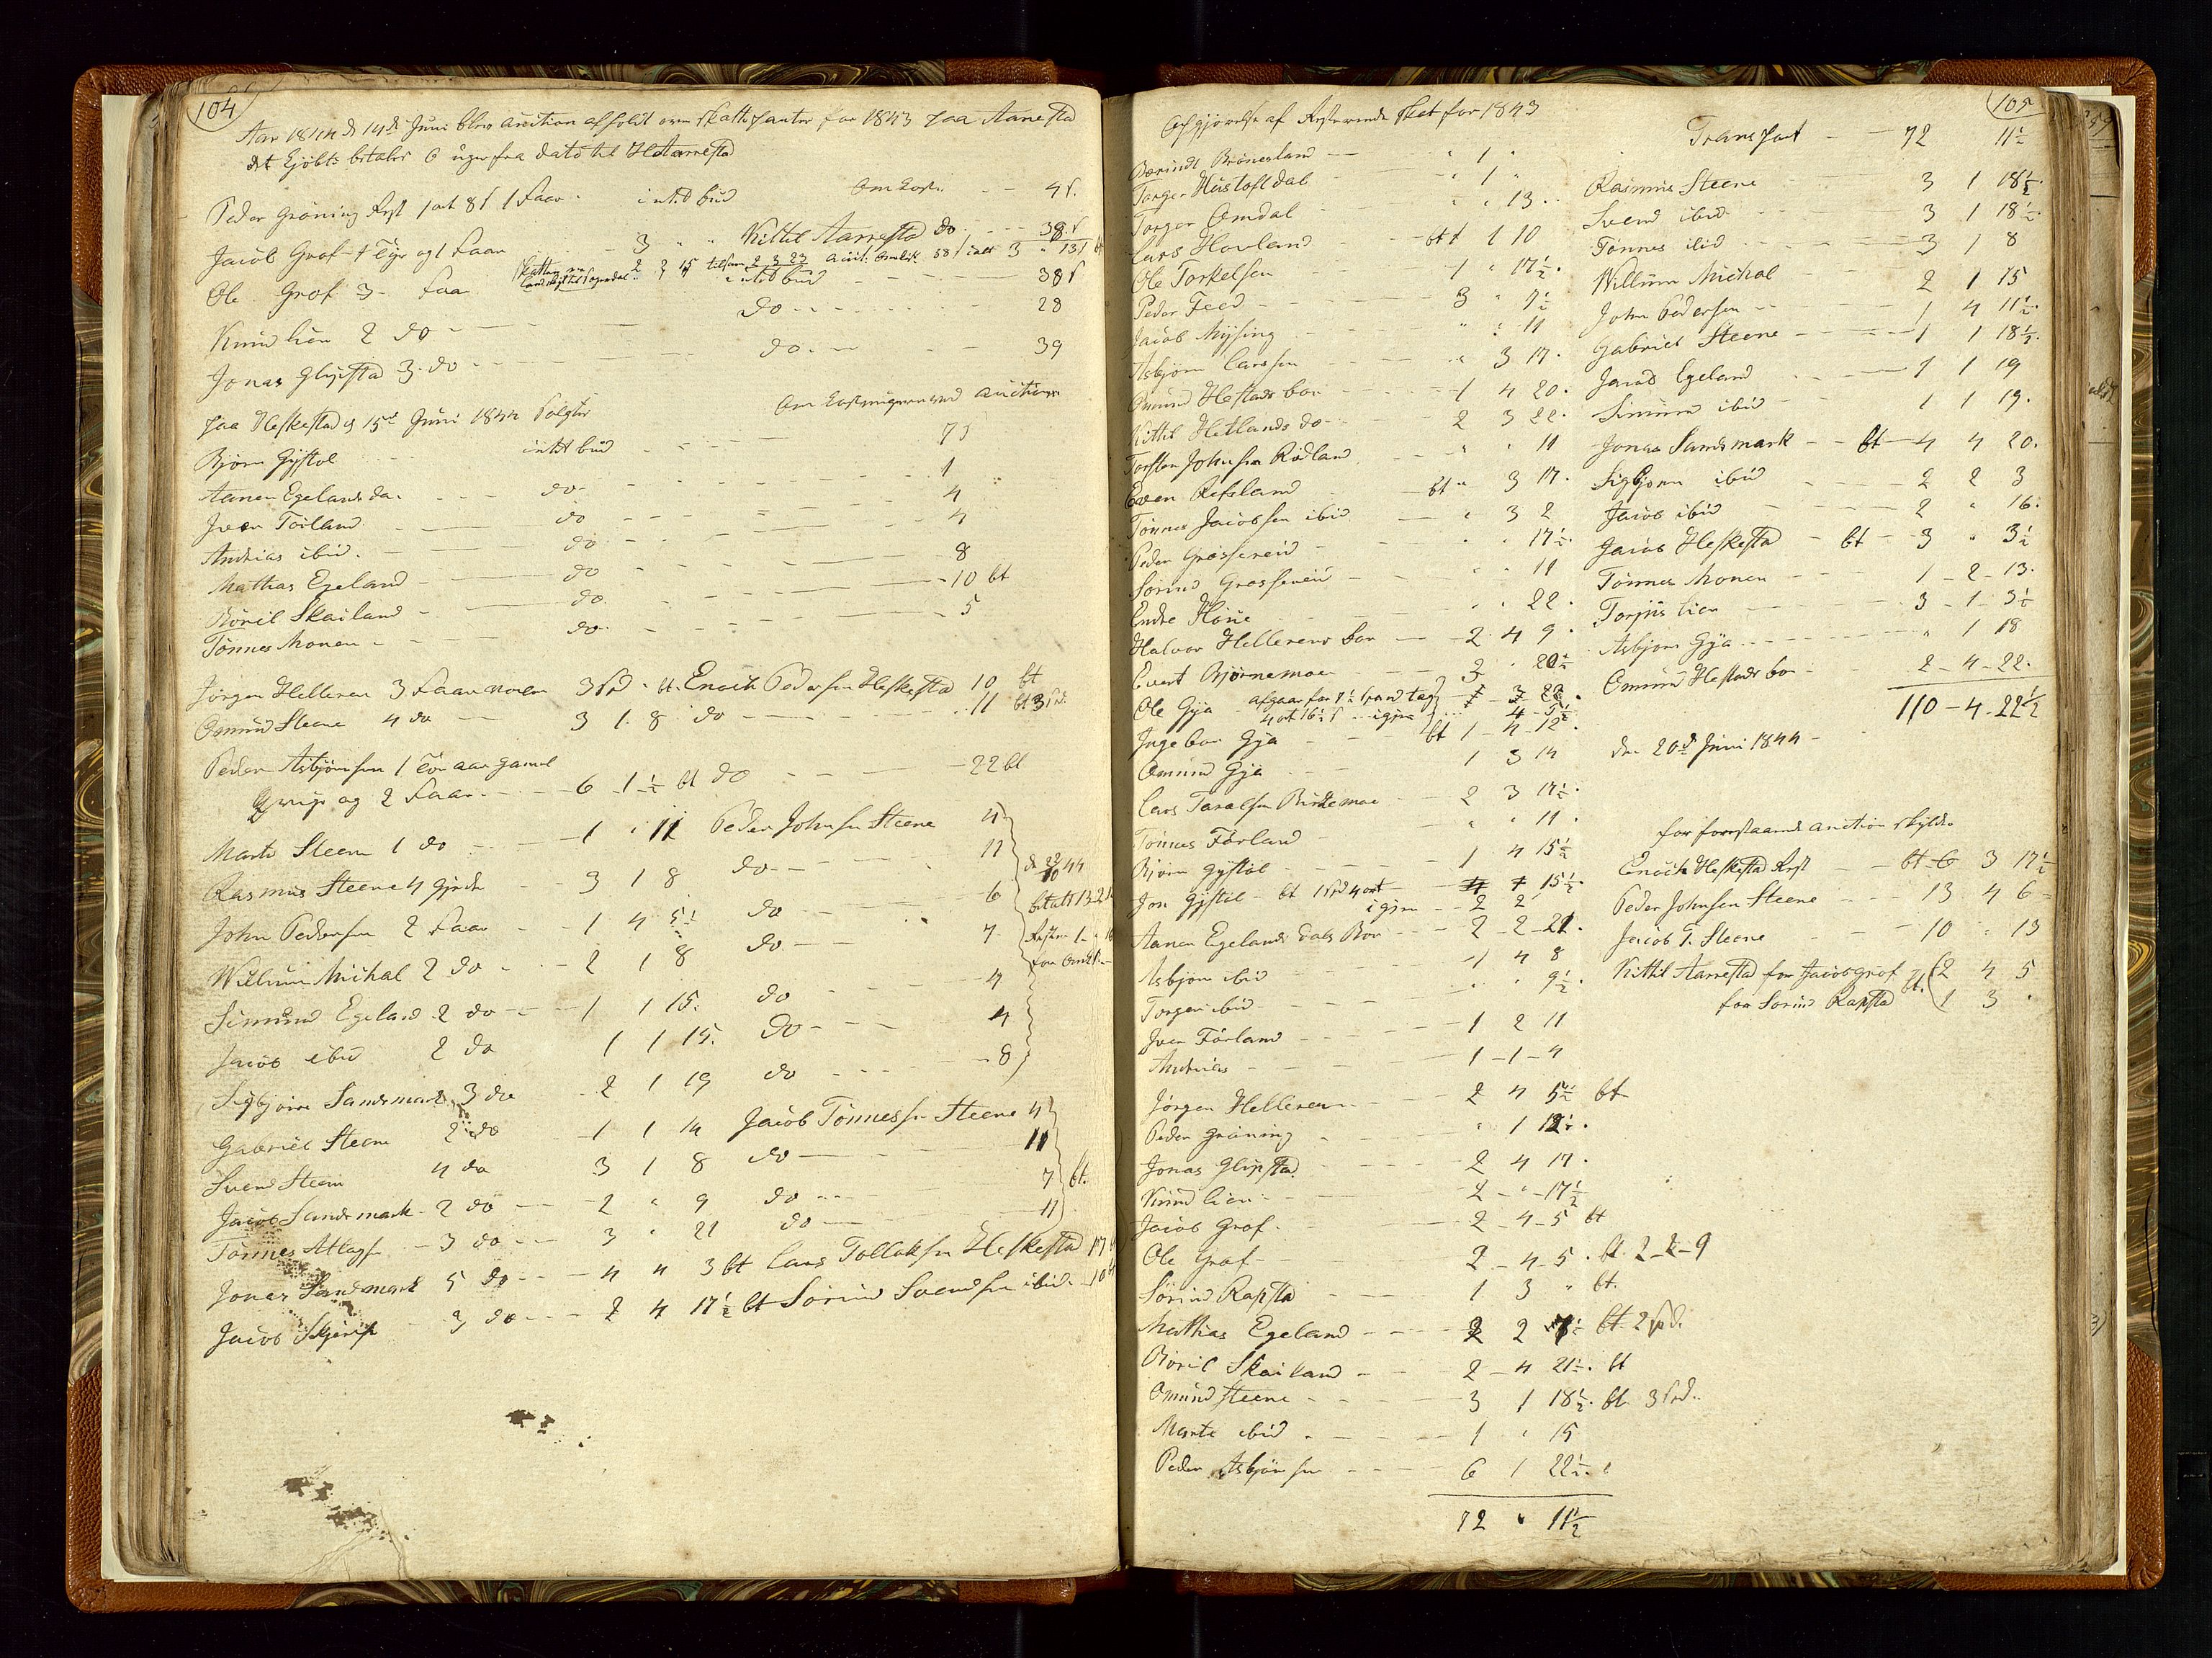 104
Aar 1844 d 14de Juni blev auction afholdt over skattepanter for 1843 paa Aarrestad
det kjøbte betales 6 uger fra dato til H. Aarrestad
Peder Grøning Rest 1 ort 8 s 1 Faar intet bud Omkost. 4 s.
Jacob Grof 1 og 1 Faar 3 " " Kittil Aarrestad do 38 s
Skatten 2 3 15 tilsam 2 3 23 3 " 13
Ole Grof 3 Faar intet bud 38 s
Knud Lien 2 do do 28
Jonas Glipstad 3 do do 39
paa Heskestad d 15de Juni 1844 Solgtes Omkostningerne ved auctionen
Bjørn Gystol intet bud 7
Aanen Egelandsda. do 1
Iver Førland do 4
Andrias ibid. do 4
Mathias Egeland do 8
Børil Skailand do 10 bt
Tønnes Monen do 5
Jørgen Helleren 3 Faar 3 Spd - bt. Enoch Pedersen Heskestad 10 bt
Omund Steene 4 do 3 1 8 do 11 bt 3 Spd.
Peder Asbjørnsen 1 Toe aar gamel
Qvige og 2 Faar 6 1 ½ bt do 22 bt
Marte Steene 1 do 1 " 11 Peder Johnsen Steene 4
Rasmus Steene 4 Gjede 3 1 8 do 11
John Pedersen 2 Faar 1 4 5½ do 6
Willum Michal 2 do 2 1 8 do 7
Simund Egeland 2 do 1 1 15 do 4
Jacob ibid 2 do 1 1 15 do 4
Sigbjørn Sandsmark 3 do 2 1 19 do 8
Gabriel Steene 2 do 1 1 14 Jacob Tønnessen Steene 4
Svend Steene 4 do 3 1 8 do 11
Jacob Sandsmark 2 do 2 " 9 do 7 bt.
Tønnes Atlags. 3 do 3 " 21 do 11
Jonas Sandsmark 5 do 4 4 3 bt Lars Tollaksen Heskestad 17
Jacob 3 do 2 4 17½ bt Sørind Svendsen ibid. 10
105
Opgjørelse af Resterende skat for 1843
Berindt Brønesland " 1 "
Torger Hustoftdal " 1 "
Torger Omdal " " 13
Lars Hovland bt 1 1 10
Ole Torkelsen 1 " 17½
Peder Feed 3 " 7½
Jacob Mysing " " 11
Asbjørn Larssen " 3 17
Omund Hestads boe 1 4 20
Kittil Hetlands do 2 3 22
Torsten Johnsen Rødland " " 11
Even Refsland bt " 3 17
Tønnes Jacobsen ibid " 3 2
Peder Grøssereid " " 17½
Sørind Grøssereid " " 11
Endre Høie " " 22
Halvor Hellerens boe 2 4 9
Evert Bjørnemoen 3 " 20½
Ole Gja afgaar for
4 ort 16½ s igjen
Ingebor Gja bt 1 4 12
Omund Gja 1 3 14
Lars Taralsen Birkemoe 2 3 17½
Tønnes Førland " " 11
Bjørn Gystol 1 4 15½
Jon Gystol bt 1 Spd 4 ort 4 1 15½
igjen 2 2
Aanen Egelands dals Boe 2 2 21
Asbjørn ibid 1 4 8
Torger ibid " " 9½
Iver Førland 1 2 11
Andrias 1 1 4
Jørgen Helleren 2 4 5½ bt
Peder Grøning " 1 12½
Jonas Glipstad 2 4 17
Knud Lien 2 " 17½
Jacob Grof 2 4 5 bt
Ole Grof 2 4 5 bt 2 2 9
Sørind Rapstad 1 3 " bt.
Mathias Egeland 2 2 7½ bt 2 Spd.
Børil Skailand 2 4 21½ bt
Omund Steene 3 1 18½ bt 3 Spd.
Marte ibid 1 " 15
Peder Asbjørnsen 6 1 22½
72 " 11½
Transport 72 11½
Rasmus Steene 3 1 18½
Svend ibid 3 1 18½
Tønnes ibid 3 1 8
Willum Michal 2 1 15
John Pedersen 1 4 11½
Gabriel Steene 1 1 18½
Jacob Egeland 1 1 19
Simund ibid 1 1 19
Jonas Sandsmark bt 4 4 20
Sigbjørn ibid 2 2 3
Jacob ibid 2 " 16
Jacob Heskestad bt 3 " 3½
Tønnes Monen 1 2 13
Torjus Lien 3 1 3½
Asbjørn Gya " 1 18
Omund Hestads boe 2 4 22
110 - 4 - 22½
den 20de Juni 1844
for forrestaaende auction skylder
Enoch Heskestad Rest bt 6 3 17½
Peder Johnsen Steene 13 4 6
Jacob T. Steene 10 " 13
Kittil Aarrestad for Jacob Grof bt. 2 4 5
for Sørind Rapstad 1 3 "